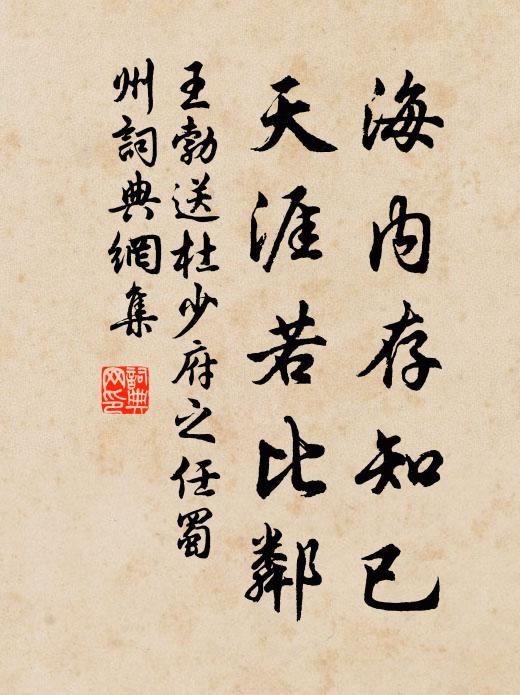 海内存知己
天涯若比鄰
王勃送杜少府之任蜀
州詞典網集
詞典網印